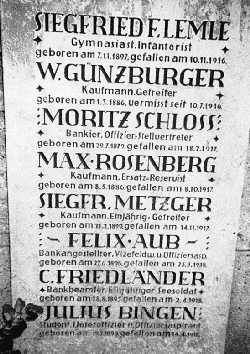 SIEGFRIED F. LEMLE
Gymnasiast, Infanterist
geboren am 7.11.1897, gefallen am 10.11.1916.
W. GÜNZBURGER
Kaufmann, Gefreiter
geboren am 1.5.1886, vermisst seit 10.7.1916.
MORITZ SCHLOSS
Bankier, Offizier-Stellvertreter
geboren am 29.7.1879, gefallen am 18.2.1917.
MAX ROSENBERG
Kaufmann, Ersatz-Reservist
geboren am 8.5.1880, gefallen am 8.10.1917.
SIEGFR. METZGER
Kaufmann, Einjährig-Gefreiter
geboren am 1892, gefallen am 14.11.1917.
FELIX AUB
Bankangestellter, Vizefeldw. u. Offiziersasp.
geboren am 27.6.1896, gefallen am 23.3.1918.
C. FRIEDLÄNDER
Bankbeamter, Einjähriger Seesoldat
geboren am 1895, gefallen am 2.4.1918.
JULIUS BINGEN
Student, Unteroffizier u. Offiziersaspirant
geboren am 1895, gefallen am 1918.